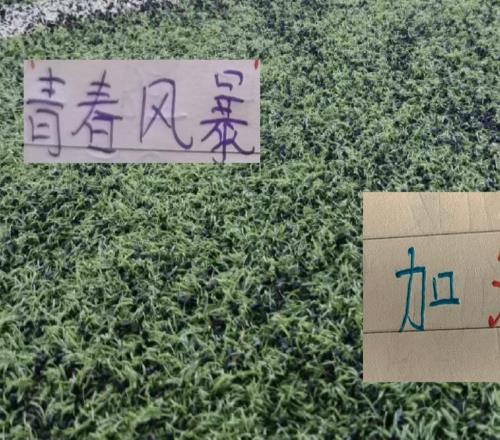 青春风暴
加